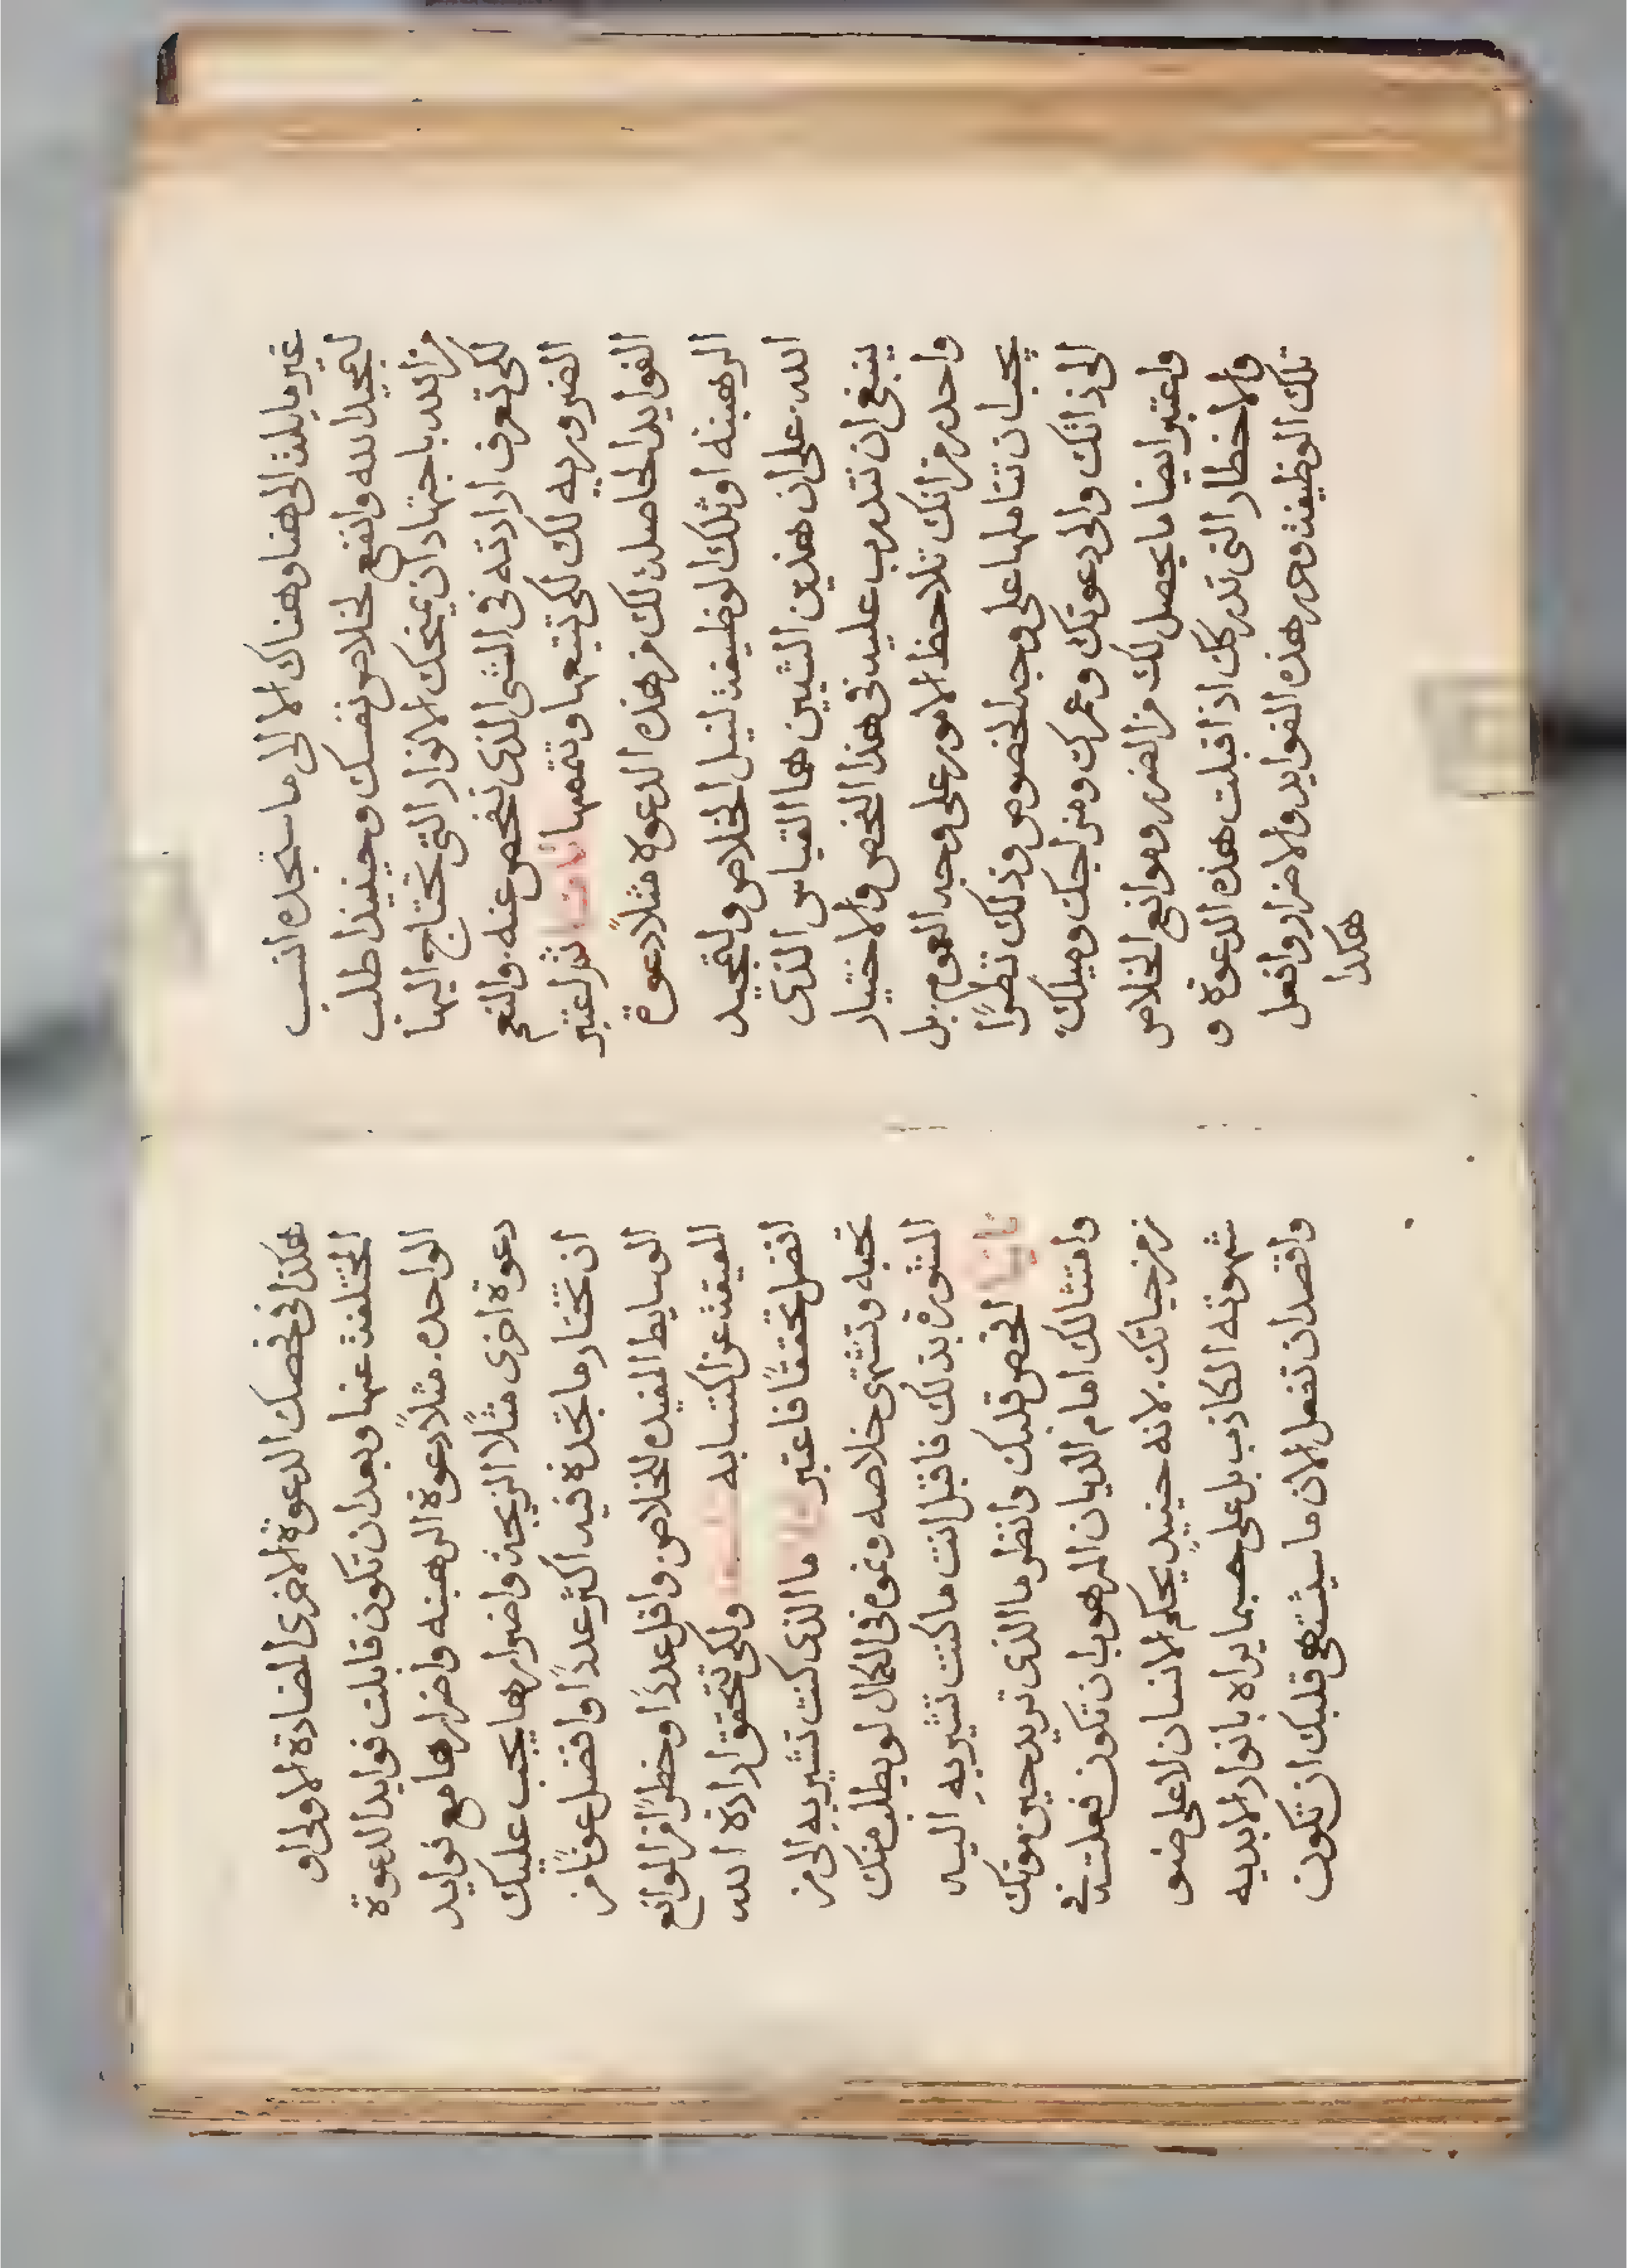 غير مايله الى هنا وهناك الا الى ما ستجده انسب
لتمجيد الله وانفع لخلاص نفسك وحينيذ اطلب
من الله باجتهاد ان يمنحك الانوار التى تحتاج اليها
لكى تعرف ارادته فى الشى الذى تفحص عنه. والنعم
الضروريه لك لكى تتبعها وتتممها ثم اعتبر
الفوايد الحاصله لك من هذه الدعوه مثلاً دعوة
الرهبنه او تلك الوظيفه لنيل الخلاص ولتمجيد
الله. على ان هذين الشيين هما القياس الذى
ينبغى ان تتدرب عليه فى هذا الفحص والاختيار
واحدر من انك تلاحظ الامور على وجه العموم. بل
يجب ان تتاملها على وجه الخصوص وذلك نظرًا
الى ذاتك والى دعوتك وعمرك ومزاجك وميلك.
واعتبر ايضا ما يحصل لك من الضرر وموانع الخلاص
والاخطار التى تدركك اذا قبلت هذه الدعوة و
تلك الوظيفه وحرر هذه الفوايد والاضرار وافعل
هكدا
هكذا فى فحصك الدعوة الاخرى المضادة الاولى او
المختلفه عنها وبعد ان تكون قابلت فوايد الدعوة
الواحده. مثلاً دعوة الرهبنه واضرارها مع فوايد
دعوة اخرى مثلًا الزيجه واضرارها يجب عليك
ان تختار ما تجده فيه اكثر عددًا وافضل عونًا من
الوسايط المفيده للخلاص واقل عددًا وخطرًا من الموانع
المعيقه عن اكتسابه ولكى تتحقق ارادة الله
افضل تحققًا فاعتبر ما الذى كنت تشير به الى من
تحبه وتشتهى خلاصه ونموه فى الكمال لو يطلب منك
المشوره بذلك فاقبل انت ما كنت تشير به اليه
ثانيًا افحص قلبك وانظر ما الذى تريد حين موتك
وامتثالك امام الديان المرهوب ان تكون فعلته فى
زمن حياتك. لانه حينيذٍ يحكم الانسان لا على ضو
شهوته الكاذب بل على حسبما يراه بانوار الابديه
واقصد ان تفعل الان ما سيشتهى قلبك ان تكون